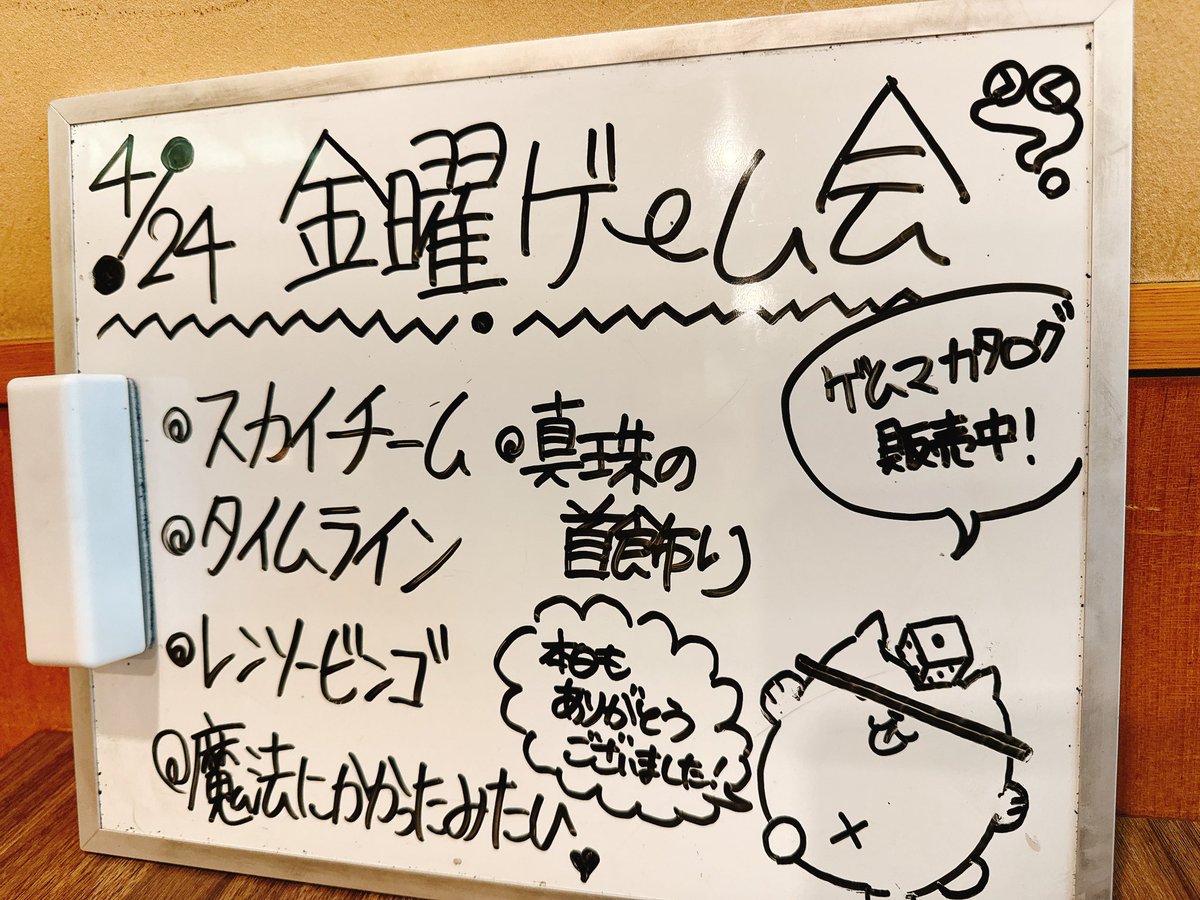 4/24 金曜ゲeム会
スカイチーム
タイムライン
レンソービンゴ
魔法にかかったみたい♥
真珠の
首飾り
ゲムマカタログ
販売中!
本日も
ありがとう
ございました!